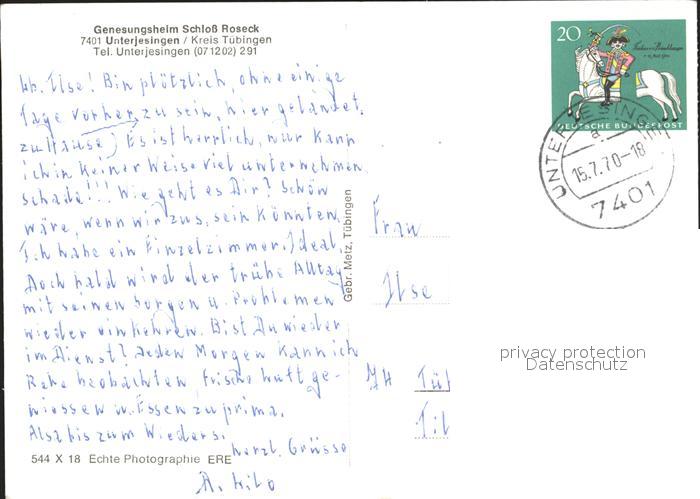 Genesungsheim Schloß Roseck
7401 Unterjesingen / Kreis Tübingen
Tel. Unterjesingen (071202) 291
lb. Ilse! Bin plötzlich, ohne einige
Tage vorher zu sein, hier gelandet.
zu Hause Es ist herrlich, nur kann
ich in keiner Weise viel unternehmen,
schade!!! Wie geht es Dir? Schön
wäre, wenn wir zus. sein könnten.
Ich habe ein Einzelzimmer. Ideal.
Doch bald wird der trübe Alltag
mit seinen Sorgen u. Problemen
wieder einkehren. Bist Du wieder
im Dienst? Jeden Morgen kann ich
Rehe beobachten frische Luft ge-
niessen u. Essen zu prima.
Also bis zum Wieders.
herzl. Grüsse
544 X 18 Echte Photographie ERE
Gebr. Metz, Tübingen
20
DEUTSCHE BUNDESPOST
UNTERJESINGEN
a
15.7.70-18
7401
Frau
Ilse
74 Tü
privacy protection
Datenschutz